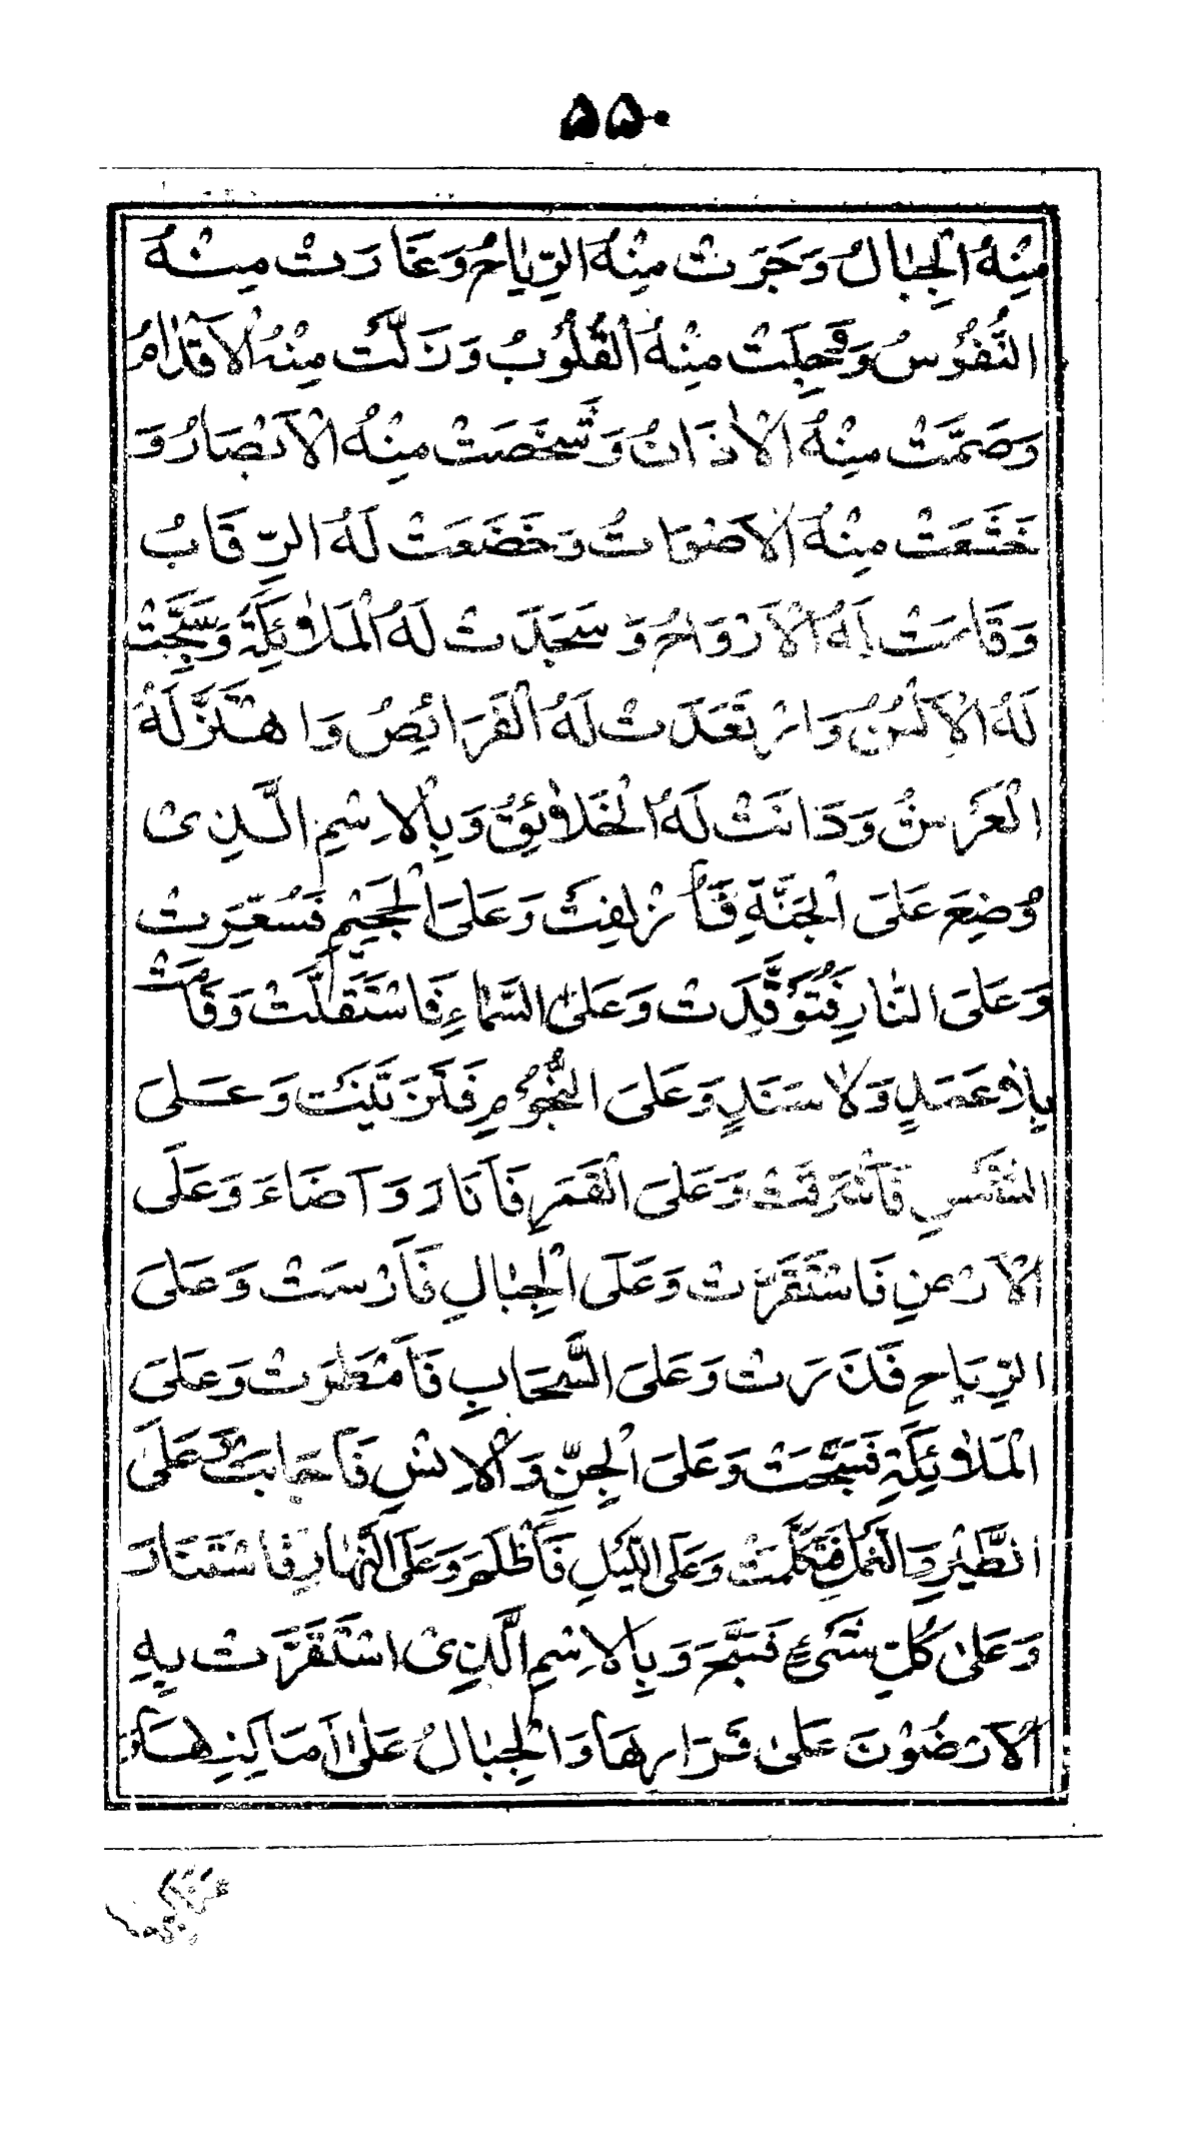 ۵۵۰
مِنْهُ الْجِبَالُ وَجَرَتْ مِنْهُ الرِّيَاحُ وَغَارَتْ مِنْهُ
النُّفُوسُ وَوَجِلَتْ مِنْهُ الْقُلُوبُ وَزَلَّتْ مِنْهُ الْاَقْدَامُ
وَصَمَّتْ مِنْهُ الْاٰذَانُ وَشَخَصَتْ مِنْهُ الْاَبْصَارُ وَ
خَشَعَتْ مِنْهُ الْاَصْوَاتُ وَخَضَعَتْ لَهُ الرِّقَابُ
وَقَامَتْ لَهُ الْاَرْوَاحُ وَسَجَدَتْ لَهُ الْمَلٰٓئِكَةُ وَسَبَّحَتْ
لَهُ الْاَلْسُنُ وَارْتَعَدَتْ لَهُ الْفَرَائِصُ وَاهْتَزَّ لَهُ
الْعَرْشُ وَدَانَتْ لَهُ الْخَلَائِقُ وَبِالْاِسْمِ الَّذِىْ
وُضِعَ عَلَى الْجَنَّةِ فَاُزْلِفَتْ وَعَلَى الْجَحِيْمِ فَسُعِّرَتْ
وَعَلَى النَّارِ فَتَوَقَّدَتْ وَعَلَى السَّمَاءِ فَاسْتَقَلَّتْ وَقَامَتْ
بِلَا عَمَدٍ وَلَا سَنَدٍ وَعَلَى النُّجُوْمِ فَتَزَيَّنَتْ وَعَلَى
الشَّمْسِ فَاَشْرَقَتْ وَعَلَى الْقَمَرِ فَاَنَارَ وَاَضَاءَ وَعَلَى
الْاَرْضِ فَاسْتَقَرَّتْ وَعَلَى الْجِبَالِ فَاَرْسَتْ وَعَلَى
الرِّيَاحِ فَذَرَتْ وَعَلَى السَّحَابِ فَاَمْطَرَتْ وَعَلَى
الْمَلٰٓئِكَةِ فَسَبَّحَتْ وَعَلَى الْجِنِّ وَالْاِنْسِ فَاَجَابَتْ وَ عَلَى
الطَّيْرِ وَالنَّمْلِ فَتَكَلَّمَتْ وَعَلَى اللَّيْلِ فَاَظْلَمَ وَعَلَى النَّهَارِ فَاسْتَنَارَ
وَعَلٰى كُلِّ شَىْءٍ فَسَبَّحَ وَبِالْاِسْمِ الَّذِىْ اسْتَقَرَّتْ بِهِ
الْاَرَضُوْنَ عَلٰى قَرَارِهَا وَالْجِبَالُ عَلٰى اَمَاكِنِهَا وَ